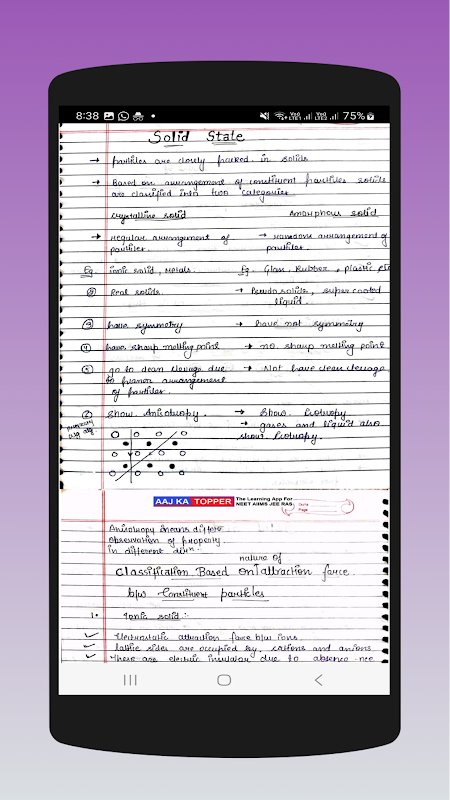 8:38
75%
Solid State
→ particles are closely packed in solids
→ Based on arrangement of constituent particles solids
are classified into two categories
Crystalline solid Amorphous solid
→ regular arrangement of → random arrangement of
particles. particles.
Eg. ionic solid, metals. Eg. Glass, Rubber, plastic,
② Real solids. → Pseudo solids, super cooled
liquid.
③ have symmetry → have not symmetry
④ have sharp melting point → no sharp melting point
⑤ go to clean clevage due → Not have clean clevage
to arrangement
of particles.
Show. Anisotropy. → Show. Isotropy.
→ gases and liquid also
show. Isotropy.
AAJ KA TOPPER The Learning App For
NEET AIIMS JEE RAS
Date
Page
Anisotropy means differ
observation of property
in different dirn.
nature of
Classification Based on attraction force
b/w Constituent particles
1. Ionic solid:-
✓ Electrostatic attraction force b/w ions.
✓ lattice sides are occupied by. cations and anions
✓ These are electric insulator due to absence